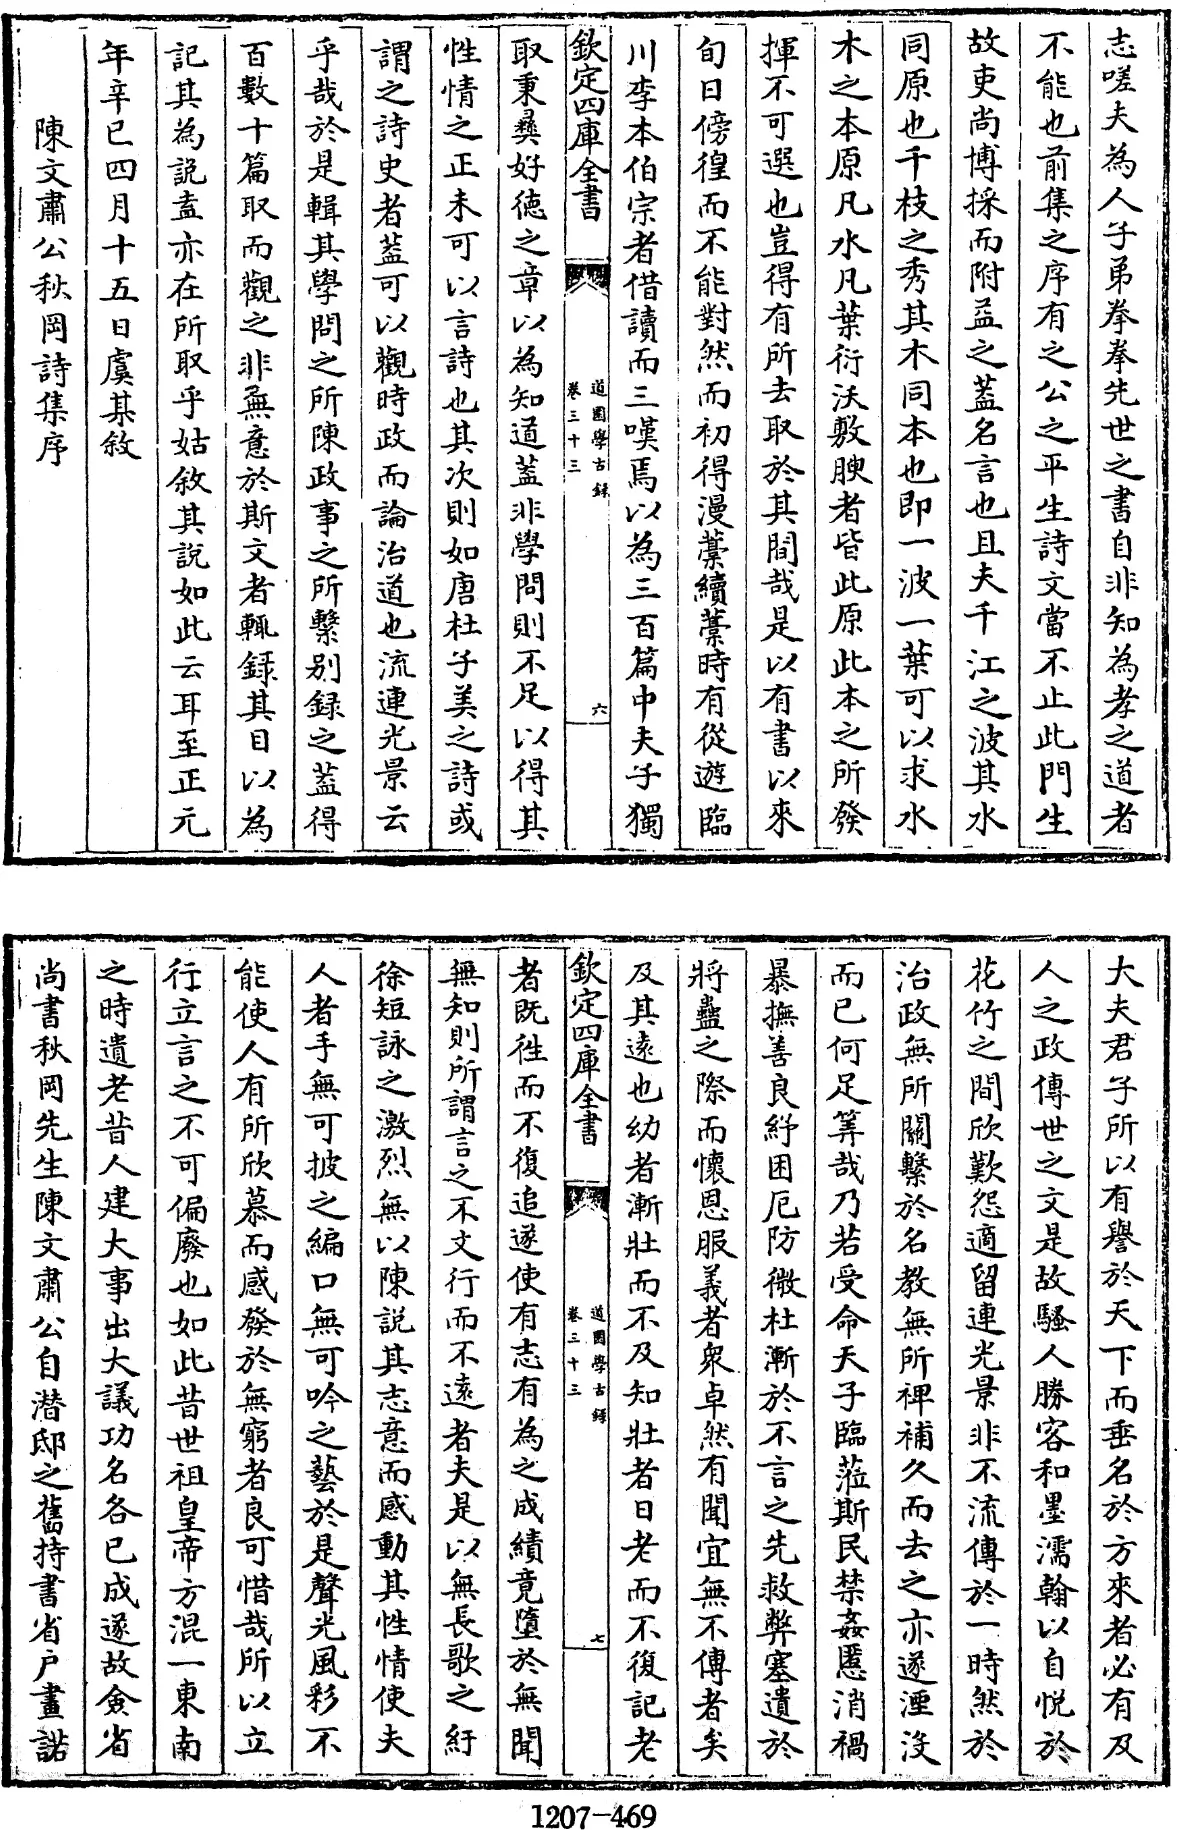 志嗟夫為人子弟拳拳先世之書自非知為孝之道者
不能也前集之序有之公之平生詩文當不止此門生
故吏尚博採而附益之蓋名言也且夫千江之波其水
同原也千枝之秀其木同本也即一波一葉可以求水
木之本原凡水凡葉衍沃敷腴者皆此原此本之所發
揮不可選也豈得有所去取於其間哉是以有書以來
旬日傍徨而不能對然而初得漫藁續藁時有從遊臨
川李本伯宗者借讀而三嘆焉以為三百篇中夫子獨
欽定四庫全書
道園學古録
卷三十三
六
取秉彞好德之章以為知道蓋非學問則不足以得其
性情之正未可以言詩也其次則如唐杜子美之詩或
謂之詩史者蓋可以觀時政而論治道也流連光景云
乎哉於是輯其學問之所陳政事之所繫别録之蓋得
百數十篇取而觀之非無意於斯文者輒録其目以為
記其為說盍亦在所取乎姑敘其說如此云耳至正元
年辛巳四月十五日虞某敘
陳文肅公秋岡詩集序
大夫君子所以有譽於天下而垂名於方來者必有及
人之政傳世之文是故騷人勝客和墨濡翰以自悦於
花竹之間欣歎怨適留連光景非不流傳於一時然於
治政無所關繫於名教無所裨補久而去之亦遂湮没
而已何足筭哉乃若受命天子臨蒞斯民禁姦慝消禍
暴撫善良紓困厄防微杜漸於不言之先救弊塞遺於
將蠱之際而懷恩服義者衆卓然有聞宜無不傳者矣
及其遠也幼者漸壯而不及知壯者日老而不復記老
欽定四庫全書
道園學古録
卷三十三
七
者既徃而不復追遂使有志有為之成績竟墮於無聞
無知則所謂言之不文行而不遠者夫是以無長歌之紆
徐短詠之激烈無以陳説其志意而感動其性情使夫
人者手無可披之編口無可吟之藝於是聲光風彩不
能使人有所欣慕而感發於無窮者良可惜哉所以立
行立言之不可偏廢也如此昔世祖皇帝方混一東南
之時遺老昔人建大事出大議功名各已成遂故僉省
尚書秋岡先生陳文肅公自潜邸之舊持書省户畫諾
1207-469